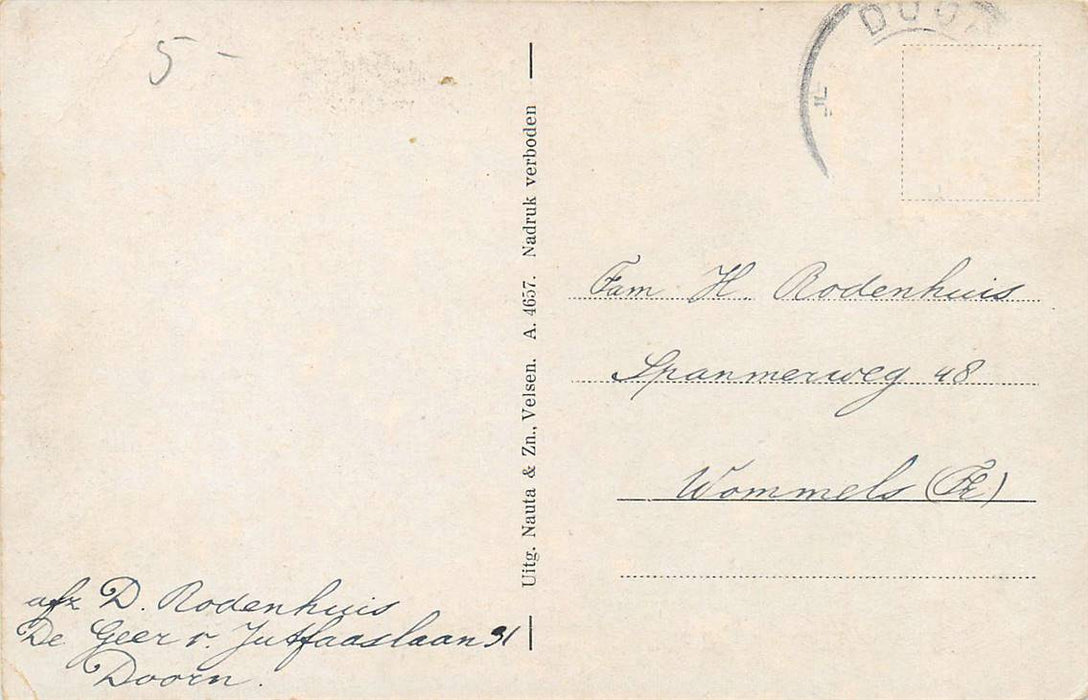 5 -
Uitg. Nauta & Zn., Velsen. A. 4657. Nadruk verboden
Fam H. Rodenhuis
Spanmerweg 48
Wommels (Fr)
afz D. Rodenhuis
De Geer v. Jutfaaslaan 31
Doorn.